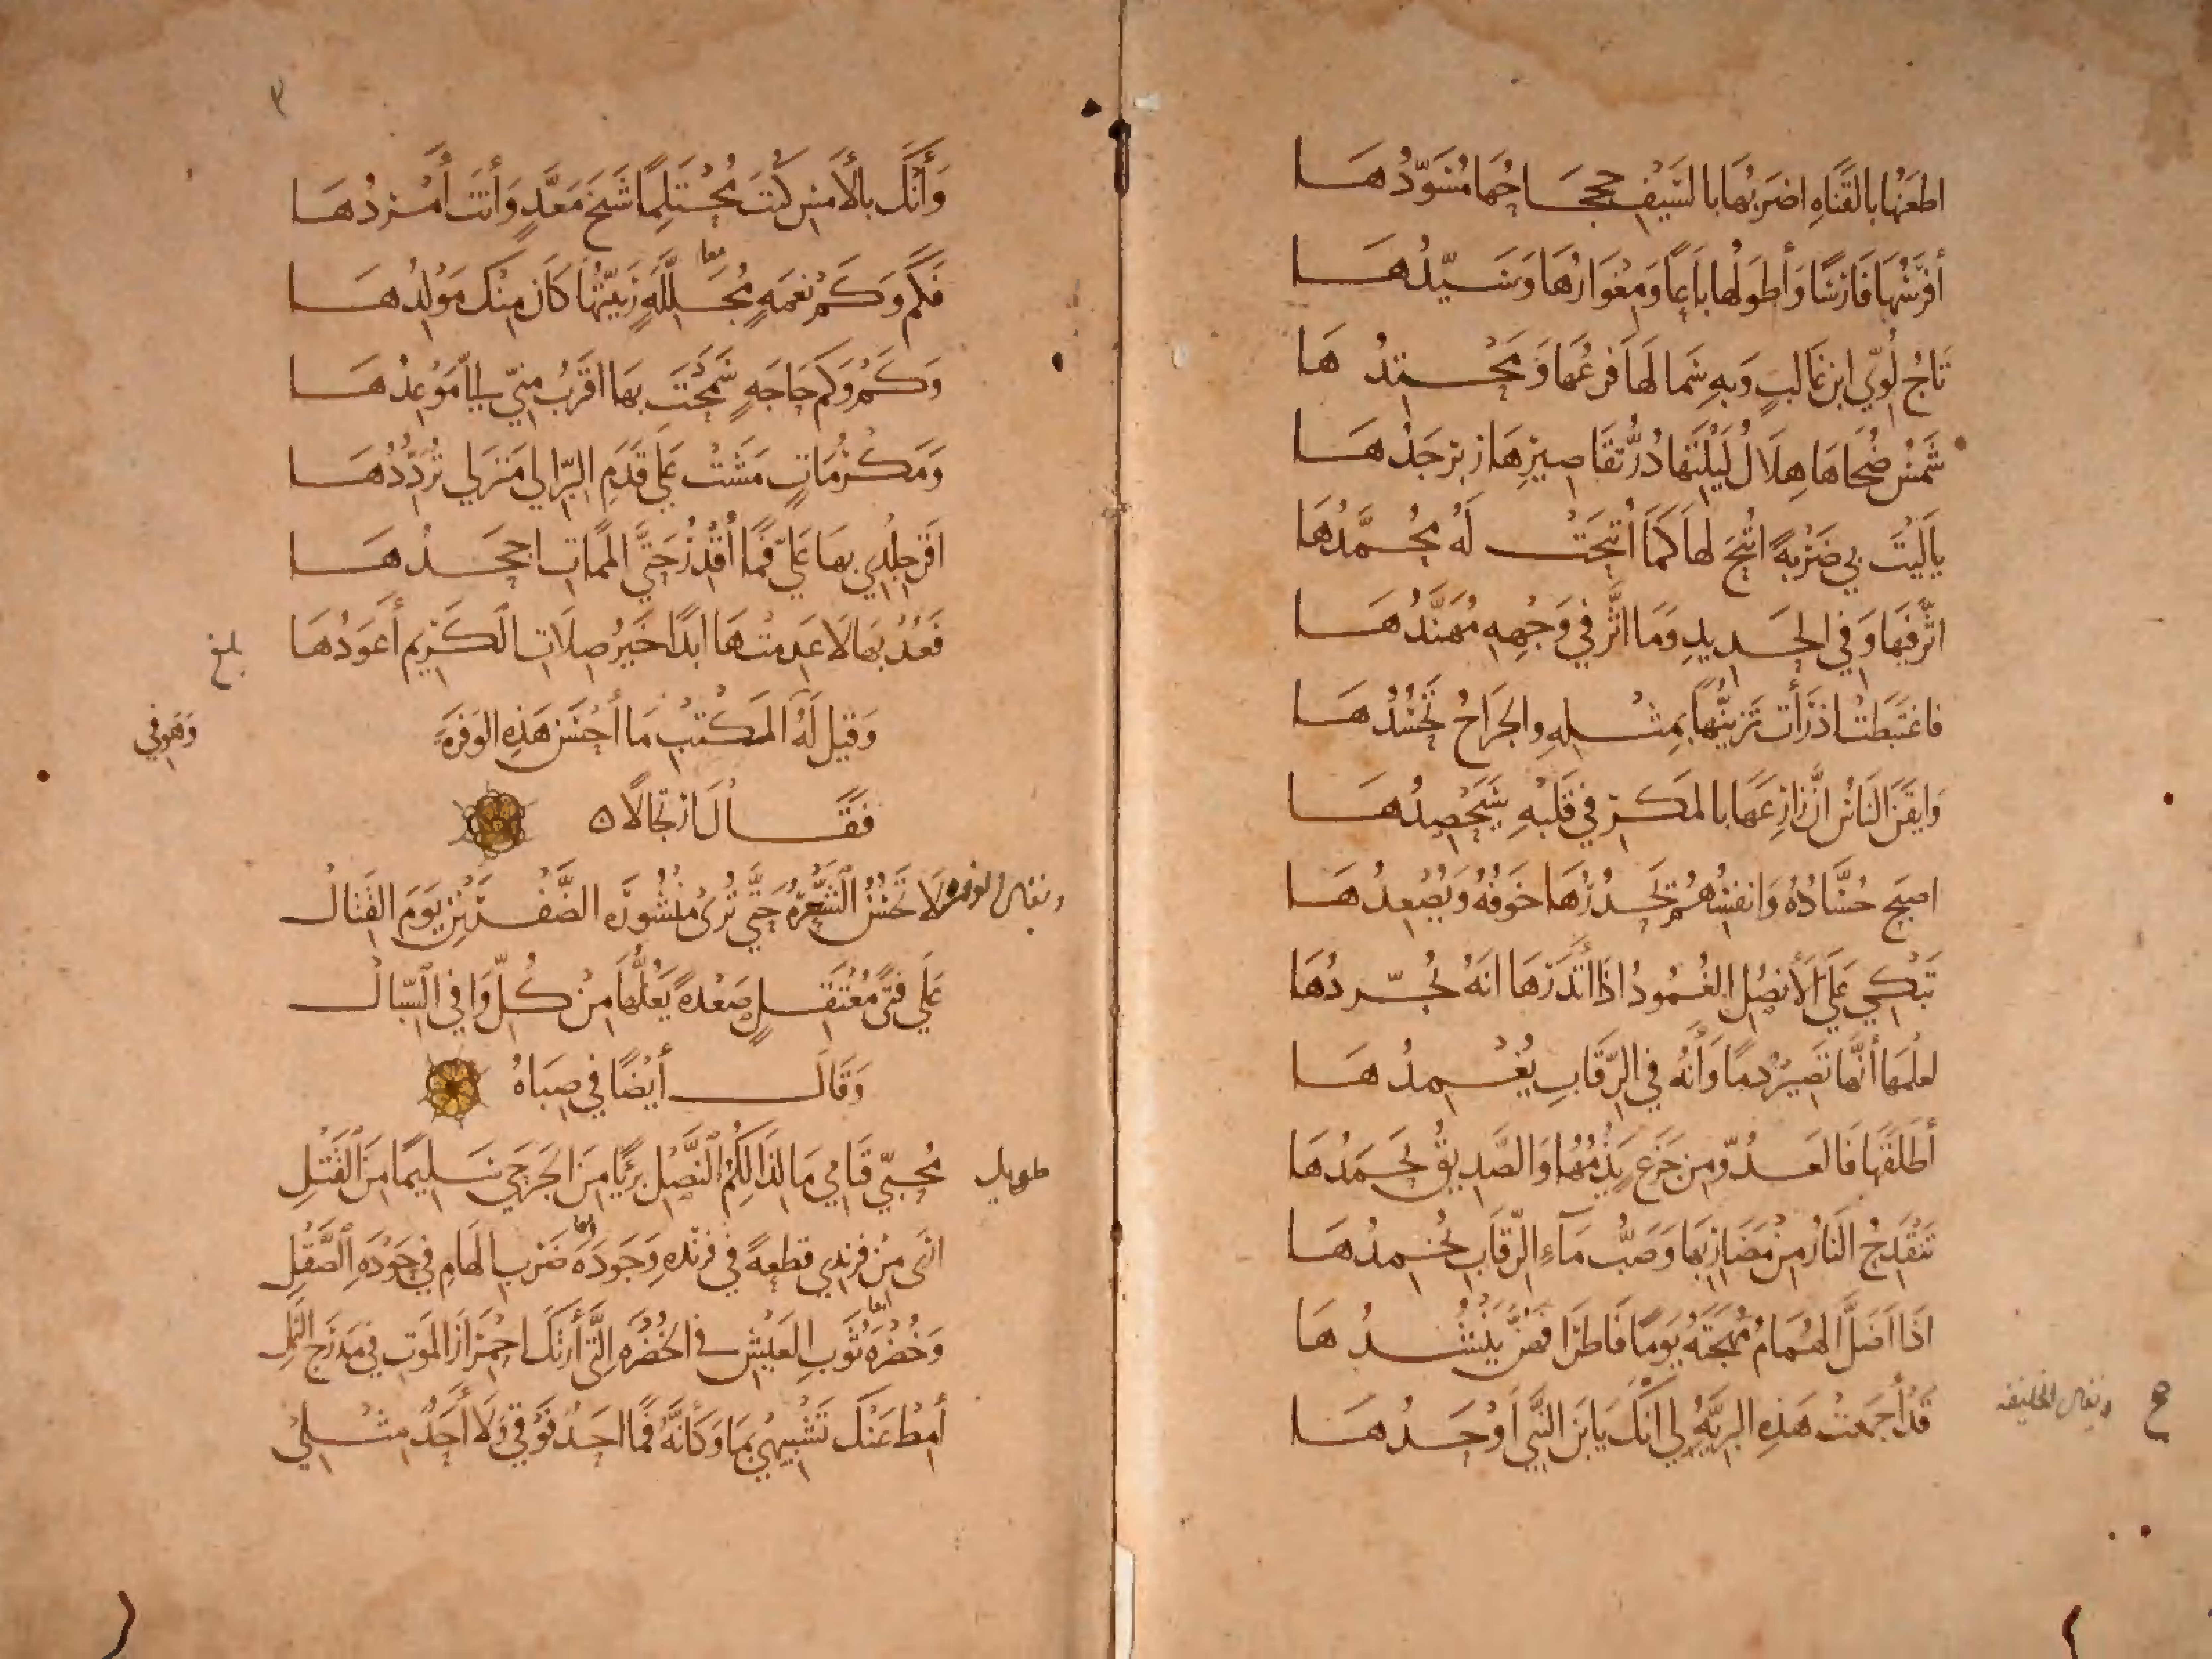 اطعَنُها بالقَناهِ اضرَبُها بالسَّيْفِ جحجَاحُها مُسَوَّدُهَا
أفرَسُها فَارِسًا وَأطوَلُها بَاعًا وَمِغْوَارُهَا وَسَيّدُهَا
تَاجُ لُوَيّ ابن غَالبٍ وَبهِ سَما لَها فَرعُها وَمَحْتِدُهَا
شَمْسُ ضُحَاهَا هِلَالُ لَيْلَتِها دُرُّ تقَاصِيرِهَا زبرجَدُهَا
يَا لَيْتَ بي ضَرْبةً اتيحَ لها كمَا أُتيحَتْ لَهُ مُحَمَّدُهَا
اثَّر فيها وَفي الحَديدِ وَمَا اثَّر في وَجهِهِ مُهَنَّدُهَا
فاغتَبَطتْ اذ رَأت تَزيّنُها بِمِثلهِ والجرَاحُ تحْسُدُهَا
وَايقَنَ النَاسُ انَّ زارِعَهَا بالمَكر في قَلبهِ سَيَحْصِدُهَا
اصبَح حُسَّادُهُ وَانفسُهُم يحْدُرُهَا خَوفُهُ وَيُصْعِدُهَا
تَبْكي عَلَى الأنصُلِ الغُمودُ اذا انذَرَهَا انهُ يُجَرّدُهَا
لعلْمهَا أنَّها تَصيرُ دمًا وَأنهُ في الرّقَابِ يُغْمِدُهَا
أطلَقَها فَالعَدوُّ من جَزَعٍ يَذُمُّها وَالصَّديقُ يَحمَدُهَا
تَنْقَدِحُ النَارُ من مَضَاربها وَصَبُّ مَاءِ الرّقَابِ يُخْمِدُهَا
اذَا اضَلَّ الهُمَامُ مُهْجَتَهُ يَومًا فَاطرَافهُنَّ يَنْشُدُهَا
قَد أجمَعتْ هَذهِ البَريَّةُ لي انَّكَ يَا بنَ النَّبي اوْحَدُهَا
ويقال الخليقه
وَأنَّكَ بالأمسِ كنتَ مُحْتَلِمًا شَيخَ مَعَدٍّ وَأنتَ أمْرَدُهَا
معا
فَكَم وَكَم نعمَهٍ مُجَلِّلَةٍ رَبيّتُها كَانَ منكَ مَوْلِدُهَا
وَكَم وَكَم حَاجَهٍ سَمَحْتَ بهَا اقرَبُ منّي إليَّ مَوْعِدُهَا
وَمَكرُمَاتٍ مَشَتْ عَلَى قَدَمِ البِرّ الى مَنزلي تُرَدِّدُهَا
اقَرّ جلْدِي بهَا عَلَيَّ فمَا أقْدِرُ حَتَّى المَمَاتِ اجحَدُهَا
فَعُدْ بهَا لا عَدِمتُهَا ابَدًا خَيرُ صِلَاتِ الكَريم أعوَدُهَا
بلغ
وَقيلَ لَهُ المَكتبُ مَا أحْسَن هَذِهِ الوَفرَة
وَهو في
فَقَالَ ارتجالًا
ويقال الوفره
لَا تَحْسُنُ الشَّعْرَةُ حَتَّى تُرَى مَنْشُورَه الضَّفْرَيْنِ يَومَ القتَال
عَلَى فَتًى مُعْتَقِلٍ صَعْدهً يَعُلُّهَا مِنْ كُلِّ وَافي السّبَال
وَقَالَ أيضًا في صِبَاهُ
طويل
مُحبّي قيَامي مَا لذَالِكُمُ النَصْل بَريًا منَ الجَرحَى سَليمًا مِنَ القَتْلِ
معا
ارَى مِن فرِندِي قطعهً في فرندِهِ وَجَودَهُ ضَربِ الهَامِ في جَودَهِ الصَّقْلِ
معا
وَخُضْرَهُ ثَوبِ العَيْشِ في الخُضْرَه التَّي أرَتكَ احمرَارَ المَوتِ في مَدرَج النَّملِ
أمِط عَنكَ تَشْبيهِي بمَا وَكَأنَّهُ فمَا احَدٌ فَوْقي وَلَا أحَدٌ مثْلي